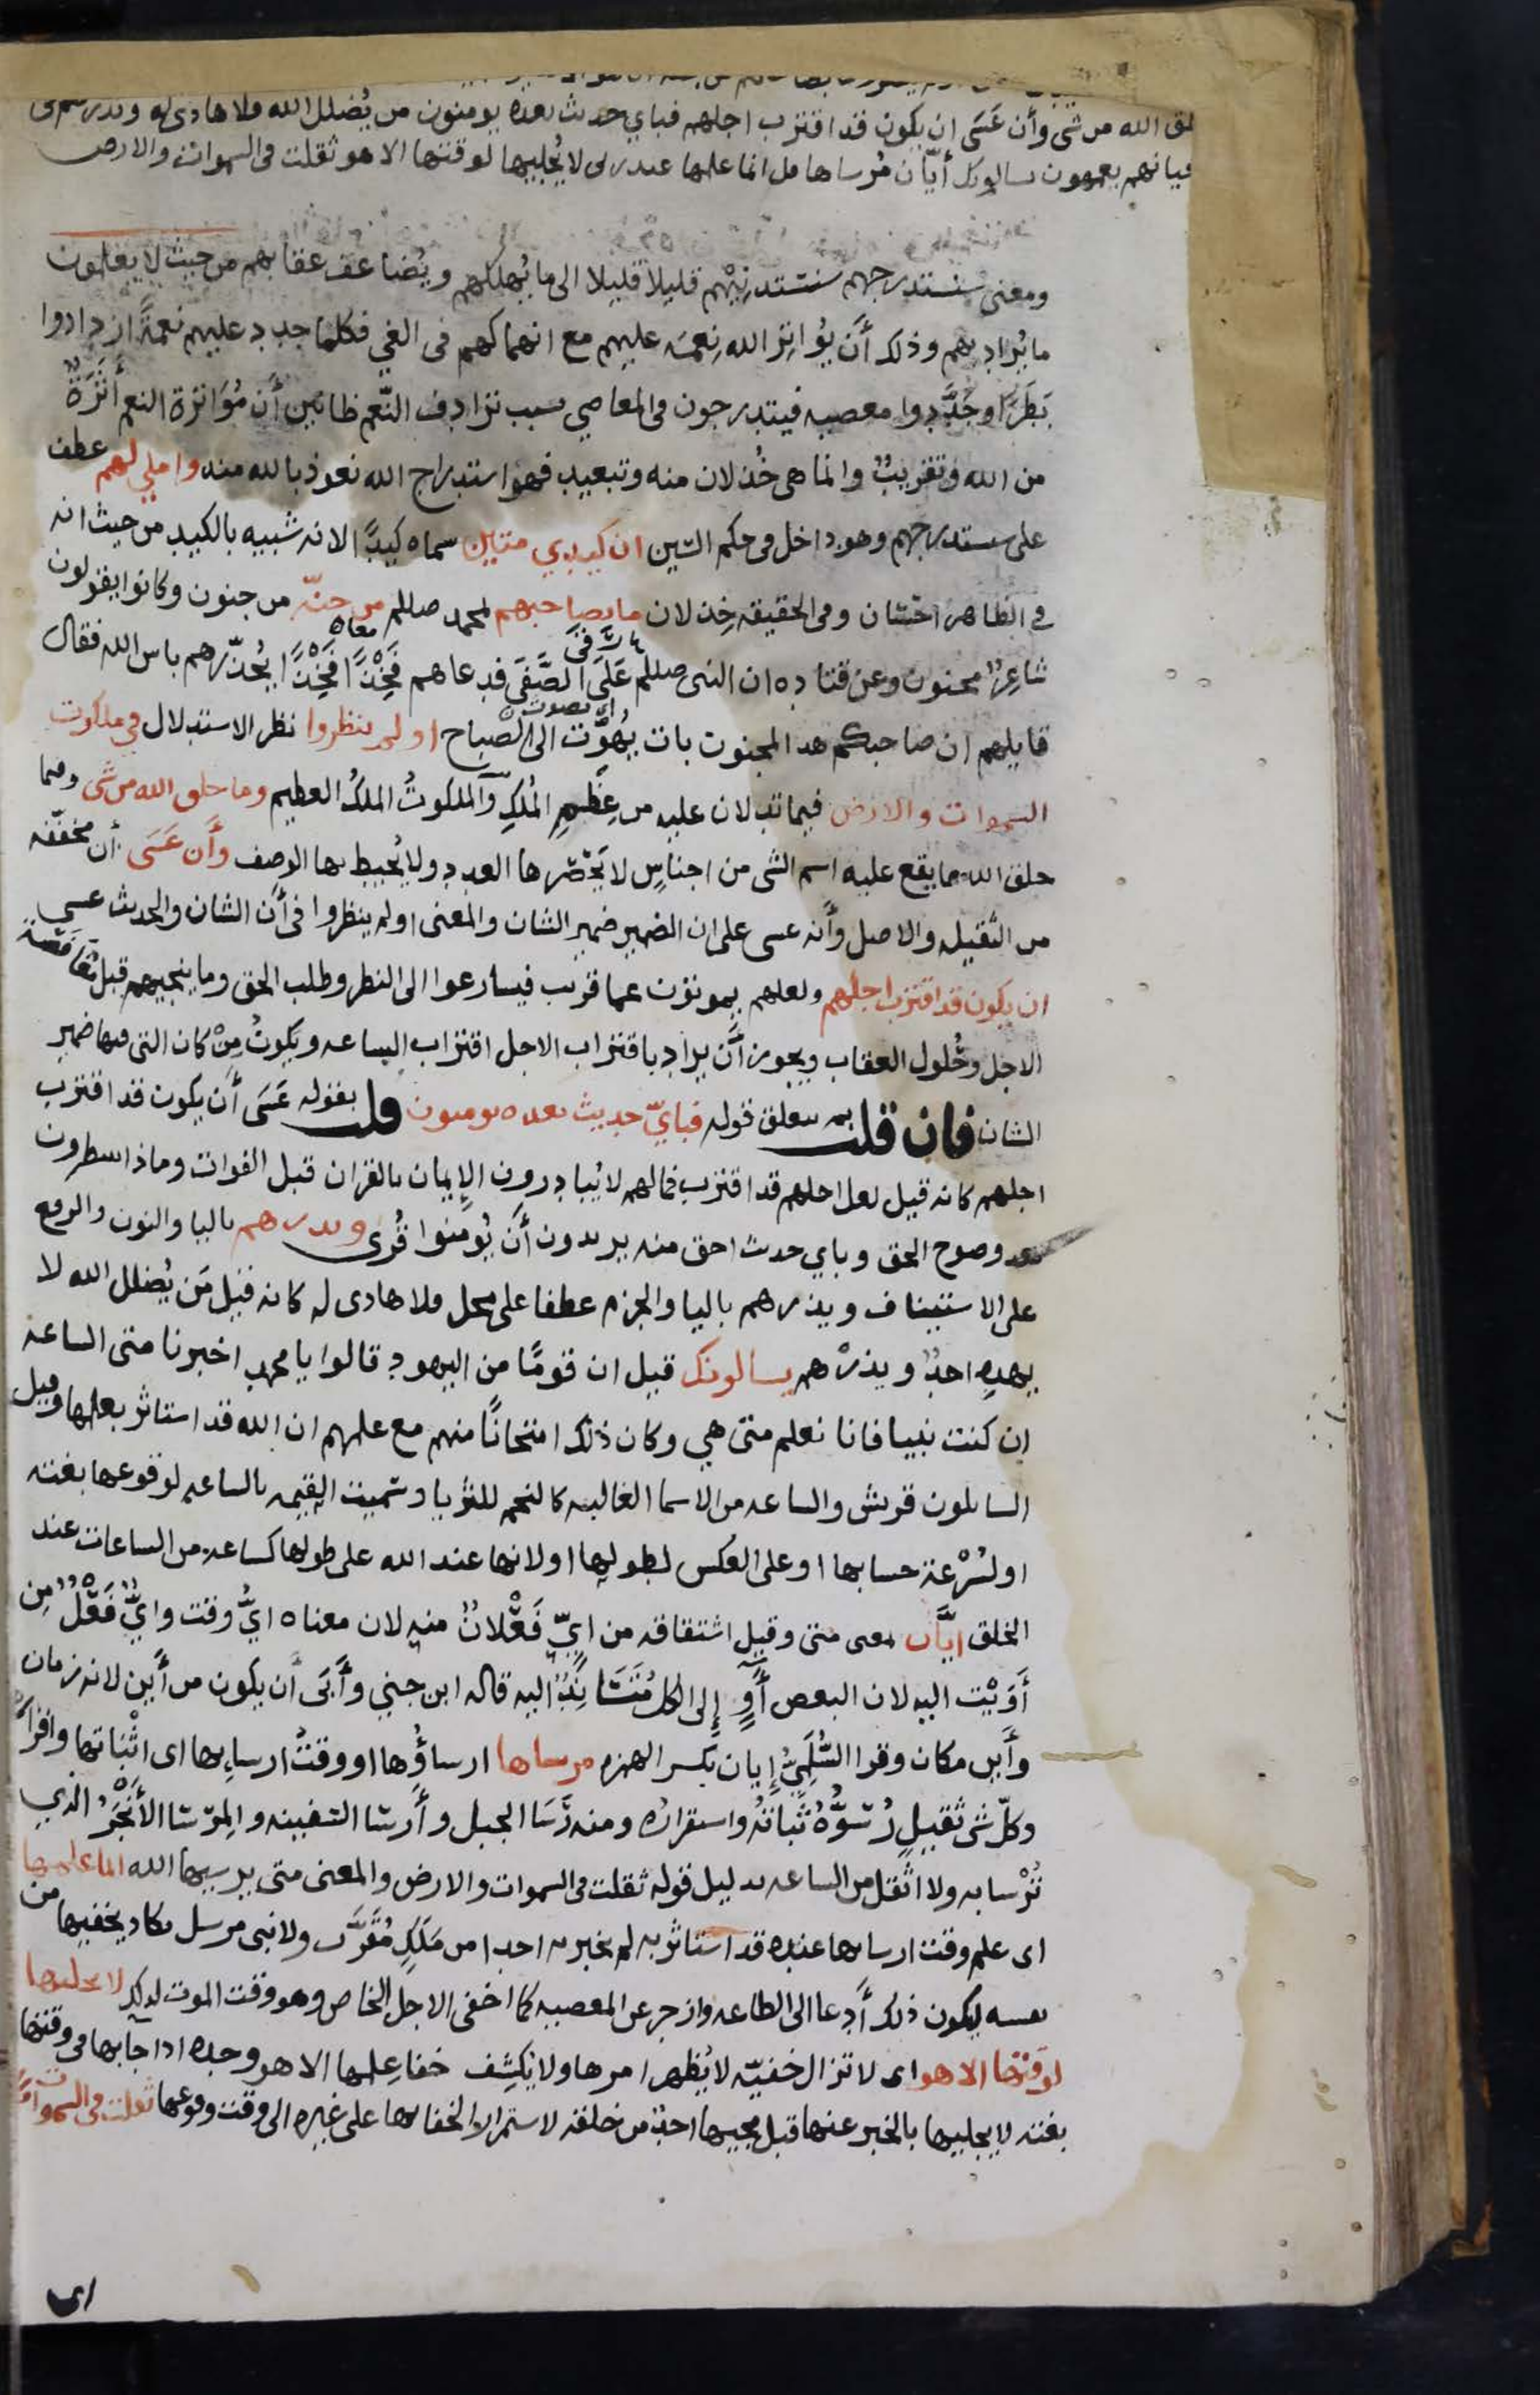 لق الله من شى وأن عَسَى ان يكون قد اقترب اجلهم فباي حديث بعده يومنون من يُضلل الله فلا هادى له ويذرهم فى
غيانهم يعمهون يسالونك أيّان مُرساها قل انما علمها عند ربى لا يُجليها لوقتها الا هو ثقلت فى السموات والارض
ومعنى سنستدرجهم سنستدنِيْهم قليلاً قليلا الى ما يُهلكهم ويُضاعف عقابهم من حيث لا يعلمون
ما يُراد بهم وذلك أن يُواتِرَ الله نِعمَه عليهم مع انهماكهم فى الغي فكلما جدد عليهم نعمةً ازدادوا
بَطَرًا وجَدَّدوا معصيه فيتدرجون فى المعاصي بسبب ترادف النّعم ظانّين أن مُوَاترة النعم أَثَرَةٌ
من الله وتقريبٌ وانما هى خُذلان منه وتبعيد فهو استدراج الله نعوذ بالله منه واملي لهم عطف
على سنستدرجهم وهو داخل فى حكم السّين ان كيدي متين سماه كيدًا لانه شبيه بالكيد من حيث انه
فى الظاهر احْسَان وفى الحقيقه خِذلان ما بصاحبهم لمحمد صللم من جنّه من جنون وكانوا يقولون
شاعِرٌ مجنون وعن قتاده ان النبى صللم عَلَى الصَّفَى فدعاهم فَخِذًا فَخِذًا يُحذّرهم باس الله فقال
قايلهم ان صاحبكم هذا لمجنون بات يُهَوِّت الى الصّباح اولم ينظروا نظر الاستدلال في ملكوت
السموات والارض فيما تدلان عليه من عِظَمِ المُلكِ والملكوتُ الملكُ العظيم وما خلق الله من شى وفيما
خلق الله مما يقع عليه اسم الشى من اجناسٍ لا يَحْصُرها العدد ولا يُحيط بها الوصف وأَن عَسَى أن مخففه
من الثقيله والاصل وأنه عسى على ان الضمير ضمير الشان والمعنى اولم ينظروا فى أن الشان والحديث عسى
ان يكون قد اقترب اجلهم ولعلهم يموتون عما قريب فيسارعوا الى النظر وطلب الحق وما ينجيهم قبل مُغَافَصَة
الاجل وحُلول العقاب ويجوز أن يراد باقتراب الاجل اقتراب الساعه ويكونُ مِنْ كان التى فيها ضمير
الشان فان قلت بم يتعلق قوله فباىّ حديث بعده يومنون قلت بقوله عَسَى أن يكون قد اقترب
اجلهم كانه قيل لعل اجلهم قد اقترب فمالهم لا يُبادرون الإيمان بالقران قبل الفوات وماذا ينتظرون
بعد وضوح الحق وباي حديث احق منه يريدون أن يُومنوا قُرى ويذرهم باليا والنون والرفع
على الاستيناف ويذرهم باليا والجزم عطفا على محل فلا هادى له كانه قيل مَن يُضلل الله لا
يهده احدٌ ويذرْهم يسالونك قيل ان قومًا من اليهود قالوا يا محمد اخبرنا متى الساعه
ان كنت نبيا فانا نعلم متى هي وكان ذلك امتحانًا منهم مع علمهم ان الله قد استاثر بعلمها وقيل
السايلون قريش والساعه من الاسما الغالبه كالنجم للثريا وسميت القيمه بالساعه لوقوعها بغته
او لسُرْعة حسابها او على العكس لطولها او لانها عند الله على طولها كساعه من الساعات عند
الخلق ايّان بمعى متى وقيل اشتقاقه من ايّ فَعْلانُ منه لان معناه ايُّ وقت وايُّ فَعْلٌ مِن
أَوَيْت اليه لان البعض أَوٍ إلى الكل مُتَسَانِدٌ اليه قاله ابن جني وأَبَى أن يكون من أين لانه زمان
وأَين مكان وقرا السُّلَمِيُّ إيان بكسر الهمزه مرساها ارساؤُها او وقتُ ارسايها اى اثْباتها واقرار
وكلّ شى ثقيلٍ رُسُوُّهُ ثَباتُهُ واستقراره ومنه رَسَا الجبل وأَرسَا السفينه والمِرْسَا الأَنْجَرُ الذي
تُرْسا به ولا اثْقل من الساعه بدليل قوله ثقلت فى السموات والارض والمعنى متى يرسيها الله انما علمها
اى علم وقت ارسايها عنده قد استاثر به لم يخبر به احدا من مَلَكٍ مُقَرَّب ولا نبى مرسل يكاد يخفيها من
نفسه ليكون ذلك أَدعا الى الطاعه وازجر عن المعصيه كما اخفى الاجل الخاص وهو وقت الموت لذلك لا يجليها
لوقتها الا هو اى لا تزال خفيّه لا يُظهر امرها ولا يَكشِف خفا عِلمها الا هو وحده اذا جا بها فى وقتها
بغته لا يجليها بالخبر عنها قبل مجيها احدٌ من خلقه لاستمرار الخفا بها على غيره الى وقت وقوعها ثقلت فى السموات
اى